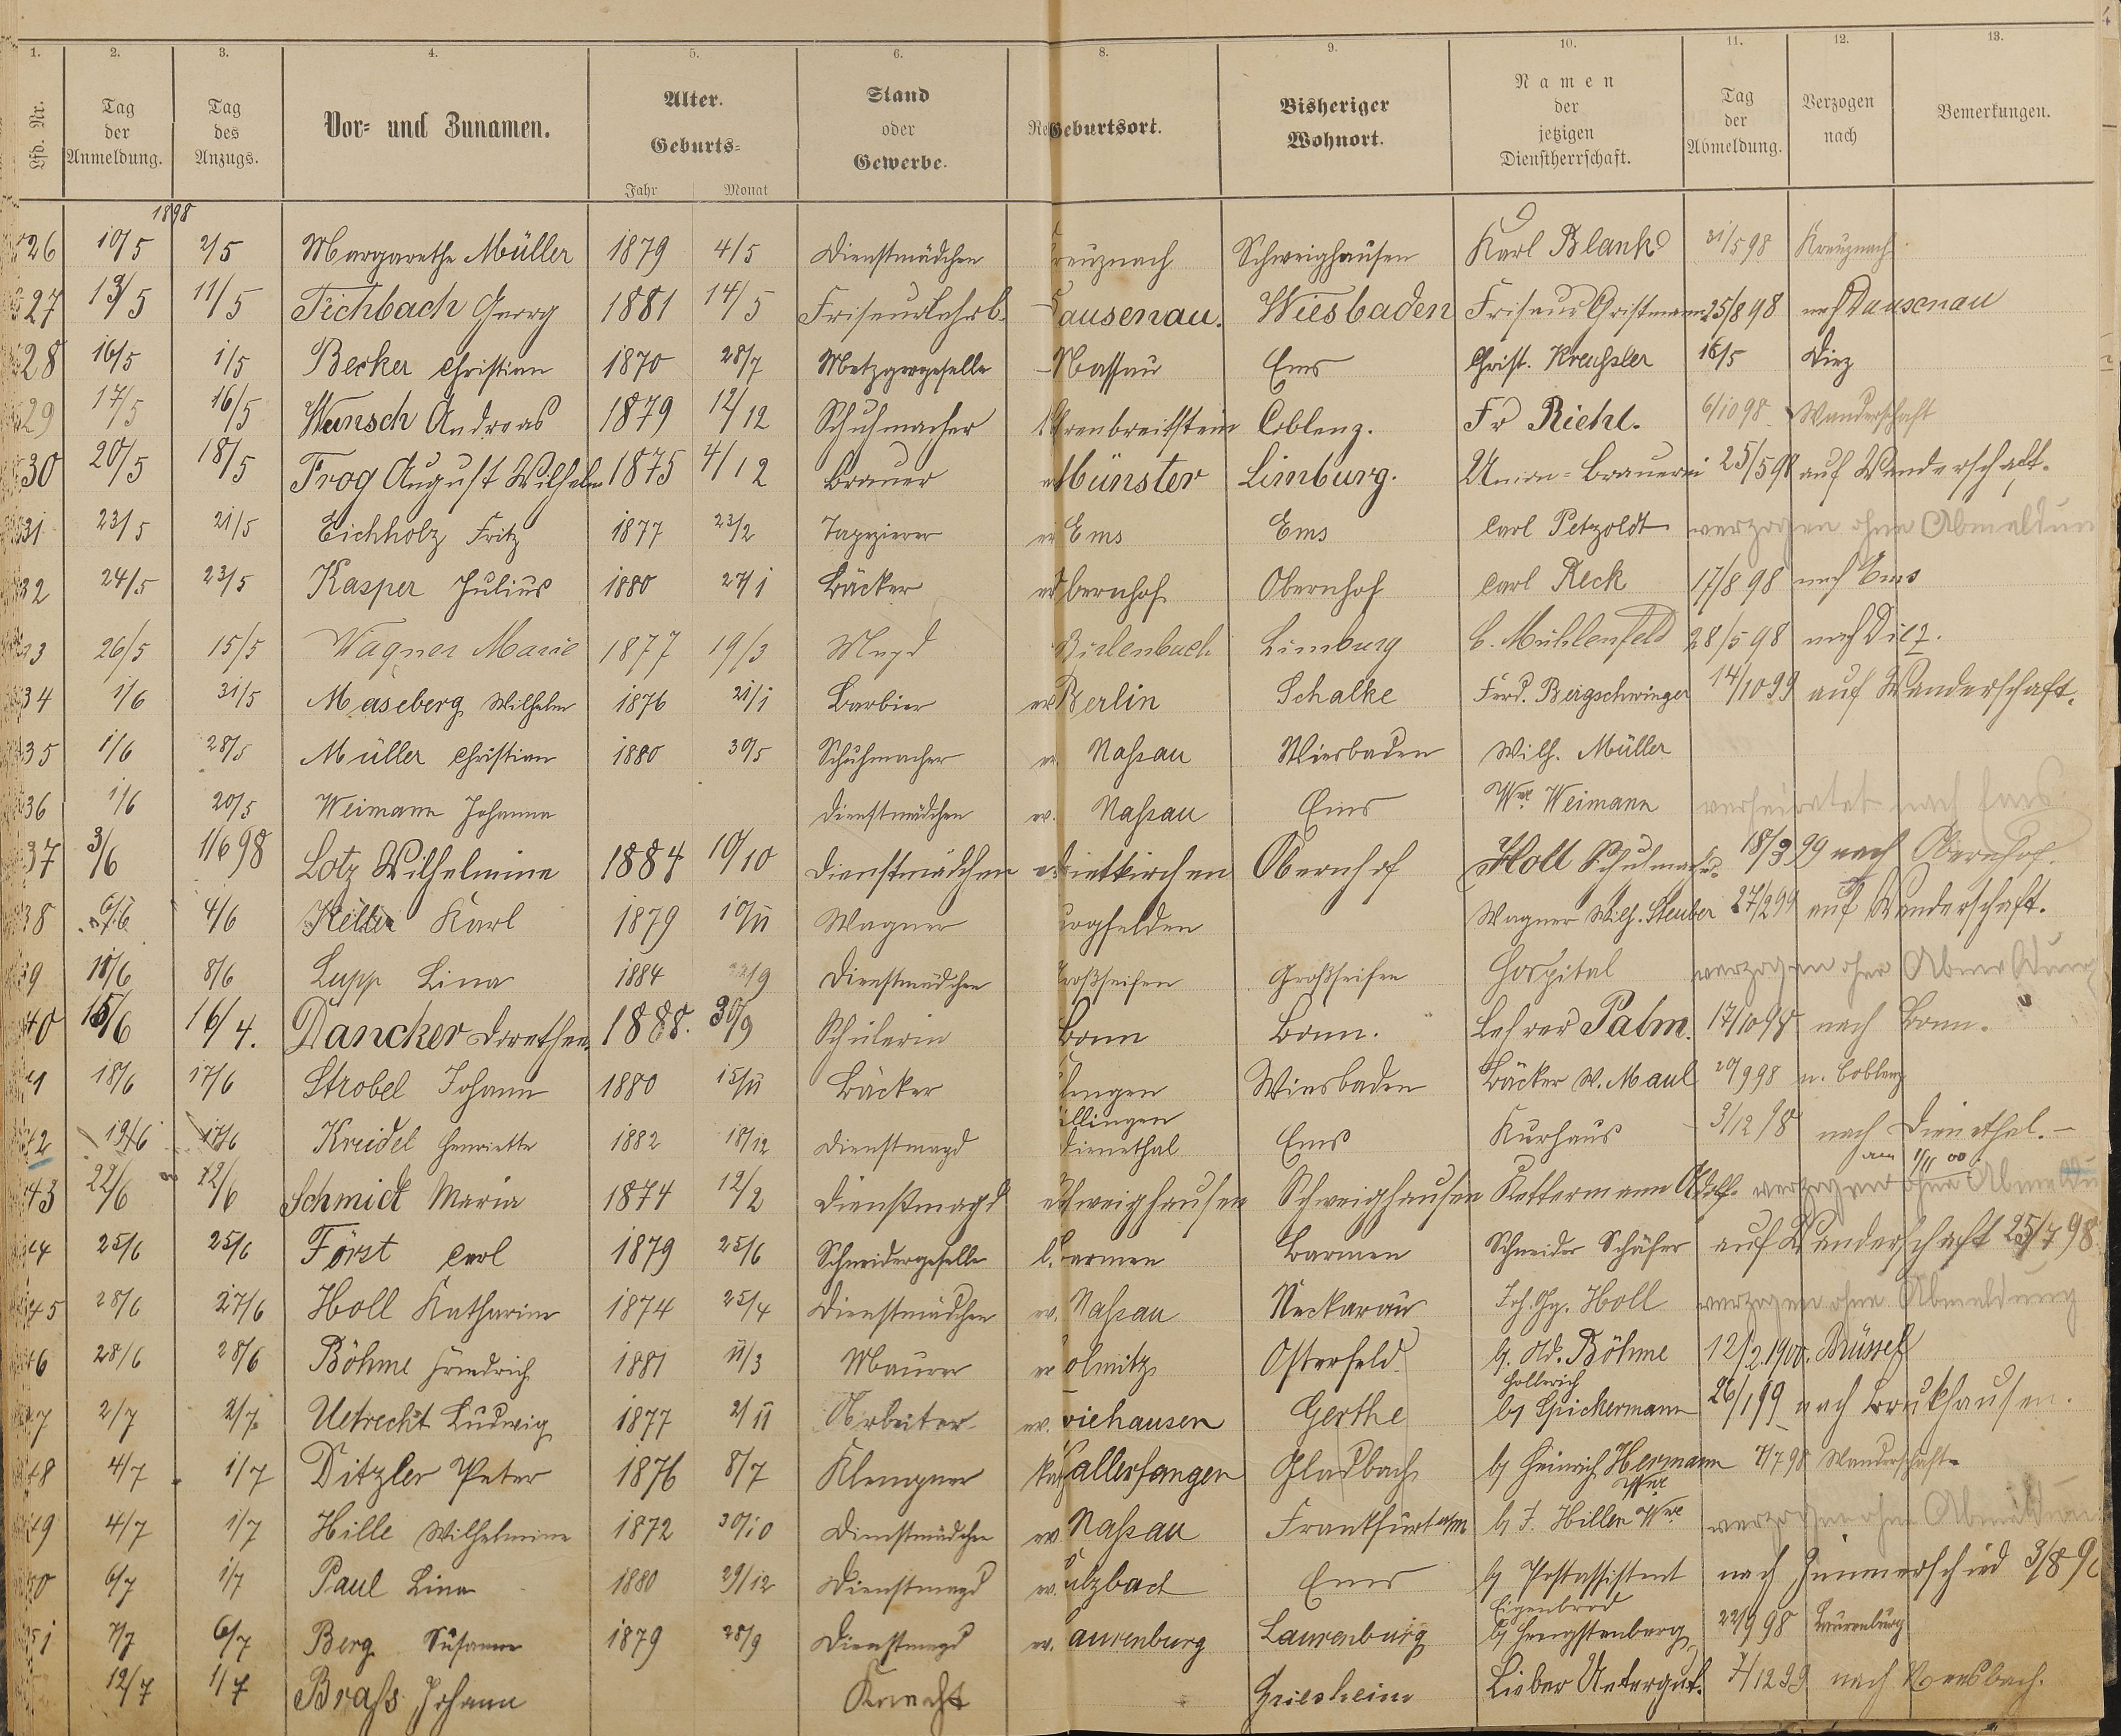 1. 2. 3. 4. 5. 6. 8. 9. 10. 11. 12. 13.
Lfd. Nr. Tag der Anmeldung. Tag des Anzugs. Vor- und Zunamen. Alter. Geburts- Jahr Monat Stand oder Gewerbe. Geburtsort. Bisheriger Wohnort. Namen der jetzigen Dienstherrschaft. Tag der Abmeldung. Verzogen nach Bemerkungen.
1898
26 10/5 2/5 Margarethe Müller 1879 4/5 Dienstmädchen reuznach Schweighausen Karl Blank 31/5 98 Kreuznach
27 13/5 11/5 Fichbach Georg 1881 14/5 Friseurlehrl. ausenau. Wiesbaden Friseur Christmann 25/8 98 nach Dausenau
28 16/5 1/5 Becker Christian 1870 28/7 Metzgergeselle Nassau Ems Christ. Kreußler 16/5 Diez
29 17/5 16/5 Wunsch Andreas 1879 12/12 Schuhmacher hrenbreitstein Coblenz. Fr Riehl. 6/10 98 Wanderschaft
30 20/5 18/5 Frog August Wilhelm 1875 4/12 Brauer Münster Limburg. Union-Brauerei 25/5 98 auf Wanderschaft.
31 23/5 21/5 Eichholz Fritz 1877 23/2 Tapezierer Ems Ems Carl Petzoldt verzogen ohne Abmeldun
32 24/5 23/5 Kasper Julius 1880 27/1 Bäcker bernhof Obernhof Carl Reck 17/8 98 nach Ems
33 26/5 15/5 Wagner Marie 1877 19/3 Magd Birlenbach Limburg C. Mühlenfeld 28/5 98 nach Diez.
34 1/6 31/5 Maseberg Wilhelm 1876 21/1 Barbier Berlin Schalke Ferd. Bergschwinger 14/10 99 auf Wanderschaft.
35 1/6 28/5 Müller Christian 1880 30/5 Schuhmacher Naßau Wiesbaden Wilh. Müller
36 1/6 20/5 Weimann Johanna Dienstmädchen Naßau Ems Wwe Weimann verheiratet nach Ems
37 3/6 1/6 98 Lotz Wilhelmine 1884 10/10 Dienstmädchen ietkirchen Obernhof Holl Schuhmacher 18/3 99 nach Obernhof.
38 6/6 4/6 Karl 1879 10/11 Wagner ogfelden Wagner Wilh. Steuber 27/2 99 auf Wanderschaft.
39 10/6 8/6 Lupp Lina 1884 Dienstmädchen roßseifen Großseifen Hospital verzogen ohne Abmeldung
40 15/6 16/4. Dancker Dorothea 1888. 30/9 Schülerin Bonn Bonn. Lehrer Palm. 17/10 98 nach Bonn.
41 18/6 17/6 Strobel Johann 1880 15/11 Bäcker ngen Wiesbaden Bäcker W. Maul 20/9 98 n. Coblenz
42 19/6 17/6 Kreidel Henriette 1882 18/12 Dienstmagd llingen Dienethal Ems Kurhaus 3/12 98 nach Dienethal.
am 1/11 00
43 22/6 22/6 Schmidt Maria 1874 12/2 Dienstmagd chweighausen Schweighausen Kettermann Adolf. verzogen ohne Abmeldu
44 25/6 25/6 Först Carl 1879 25/6 Schneidergeselle armen Barmen Schneider Schäfer auf Wanderschaft 25/7 98
45 28/6 27/6 Holl Katharine 1874 25/4 Dienstmädchen Naßau Neckarau Joh. Gg. Holl verzogen ohne Abmeldung
46 28/6 28/6 Böhme Friedrich 1881 11/3 Maurer olmitz Osterfeld Böhme 12/2.1900. Brüssel
47 2/7 2/7 Uetrecht Ludwig 1877 2/11 Arbeiter viehausen Gerthe Hollerich Spickermann 26/1 99 nach Bruckhausen.
48 4/7 1/7 Ditzler Peter 1876 8/7 Klempner allerfangen Gladbach by Heinrich Hermann Wwe 7/7 98 Wanderschaft
49 4/7 1/7 Hille Wilhelmine 1872 30/10 Dienstmädchen Naßau Frankfurt a/m by J. Hillen Wwe verzogen ohne Abmeldun
50 6/7 1/7 Paul Lina 1880 29/12 Dienstmagd ulzbach Ems by Postassistent Eigenbrod nach Zimmerschied 3/8 9
51 7/7 6/7 Berg Susanne 1879 28/9 Dienstmagd aurenburg Laurenburg by Hengstenberg 22/9 98 Laurenburg
12/7 1/7 Braß Johann Knecht Griesheim Lieber Untergut. 7/12 99 nach